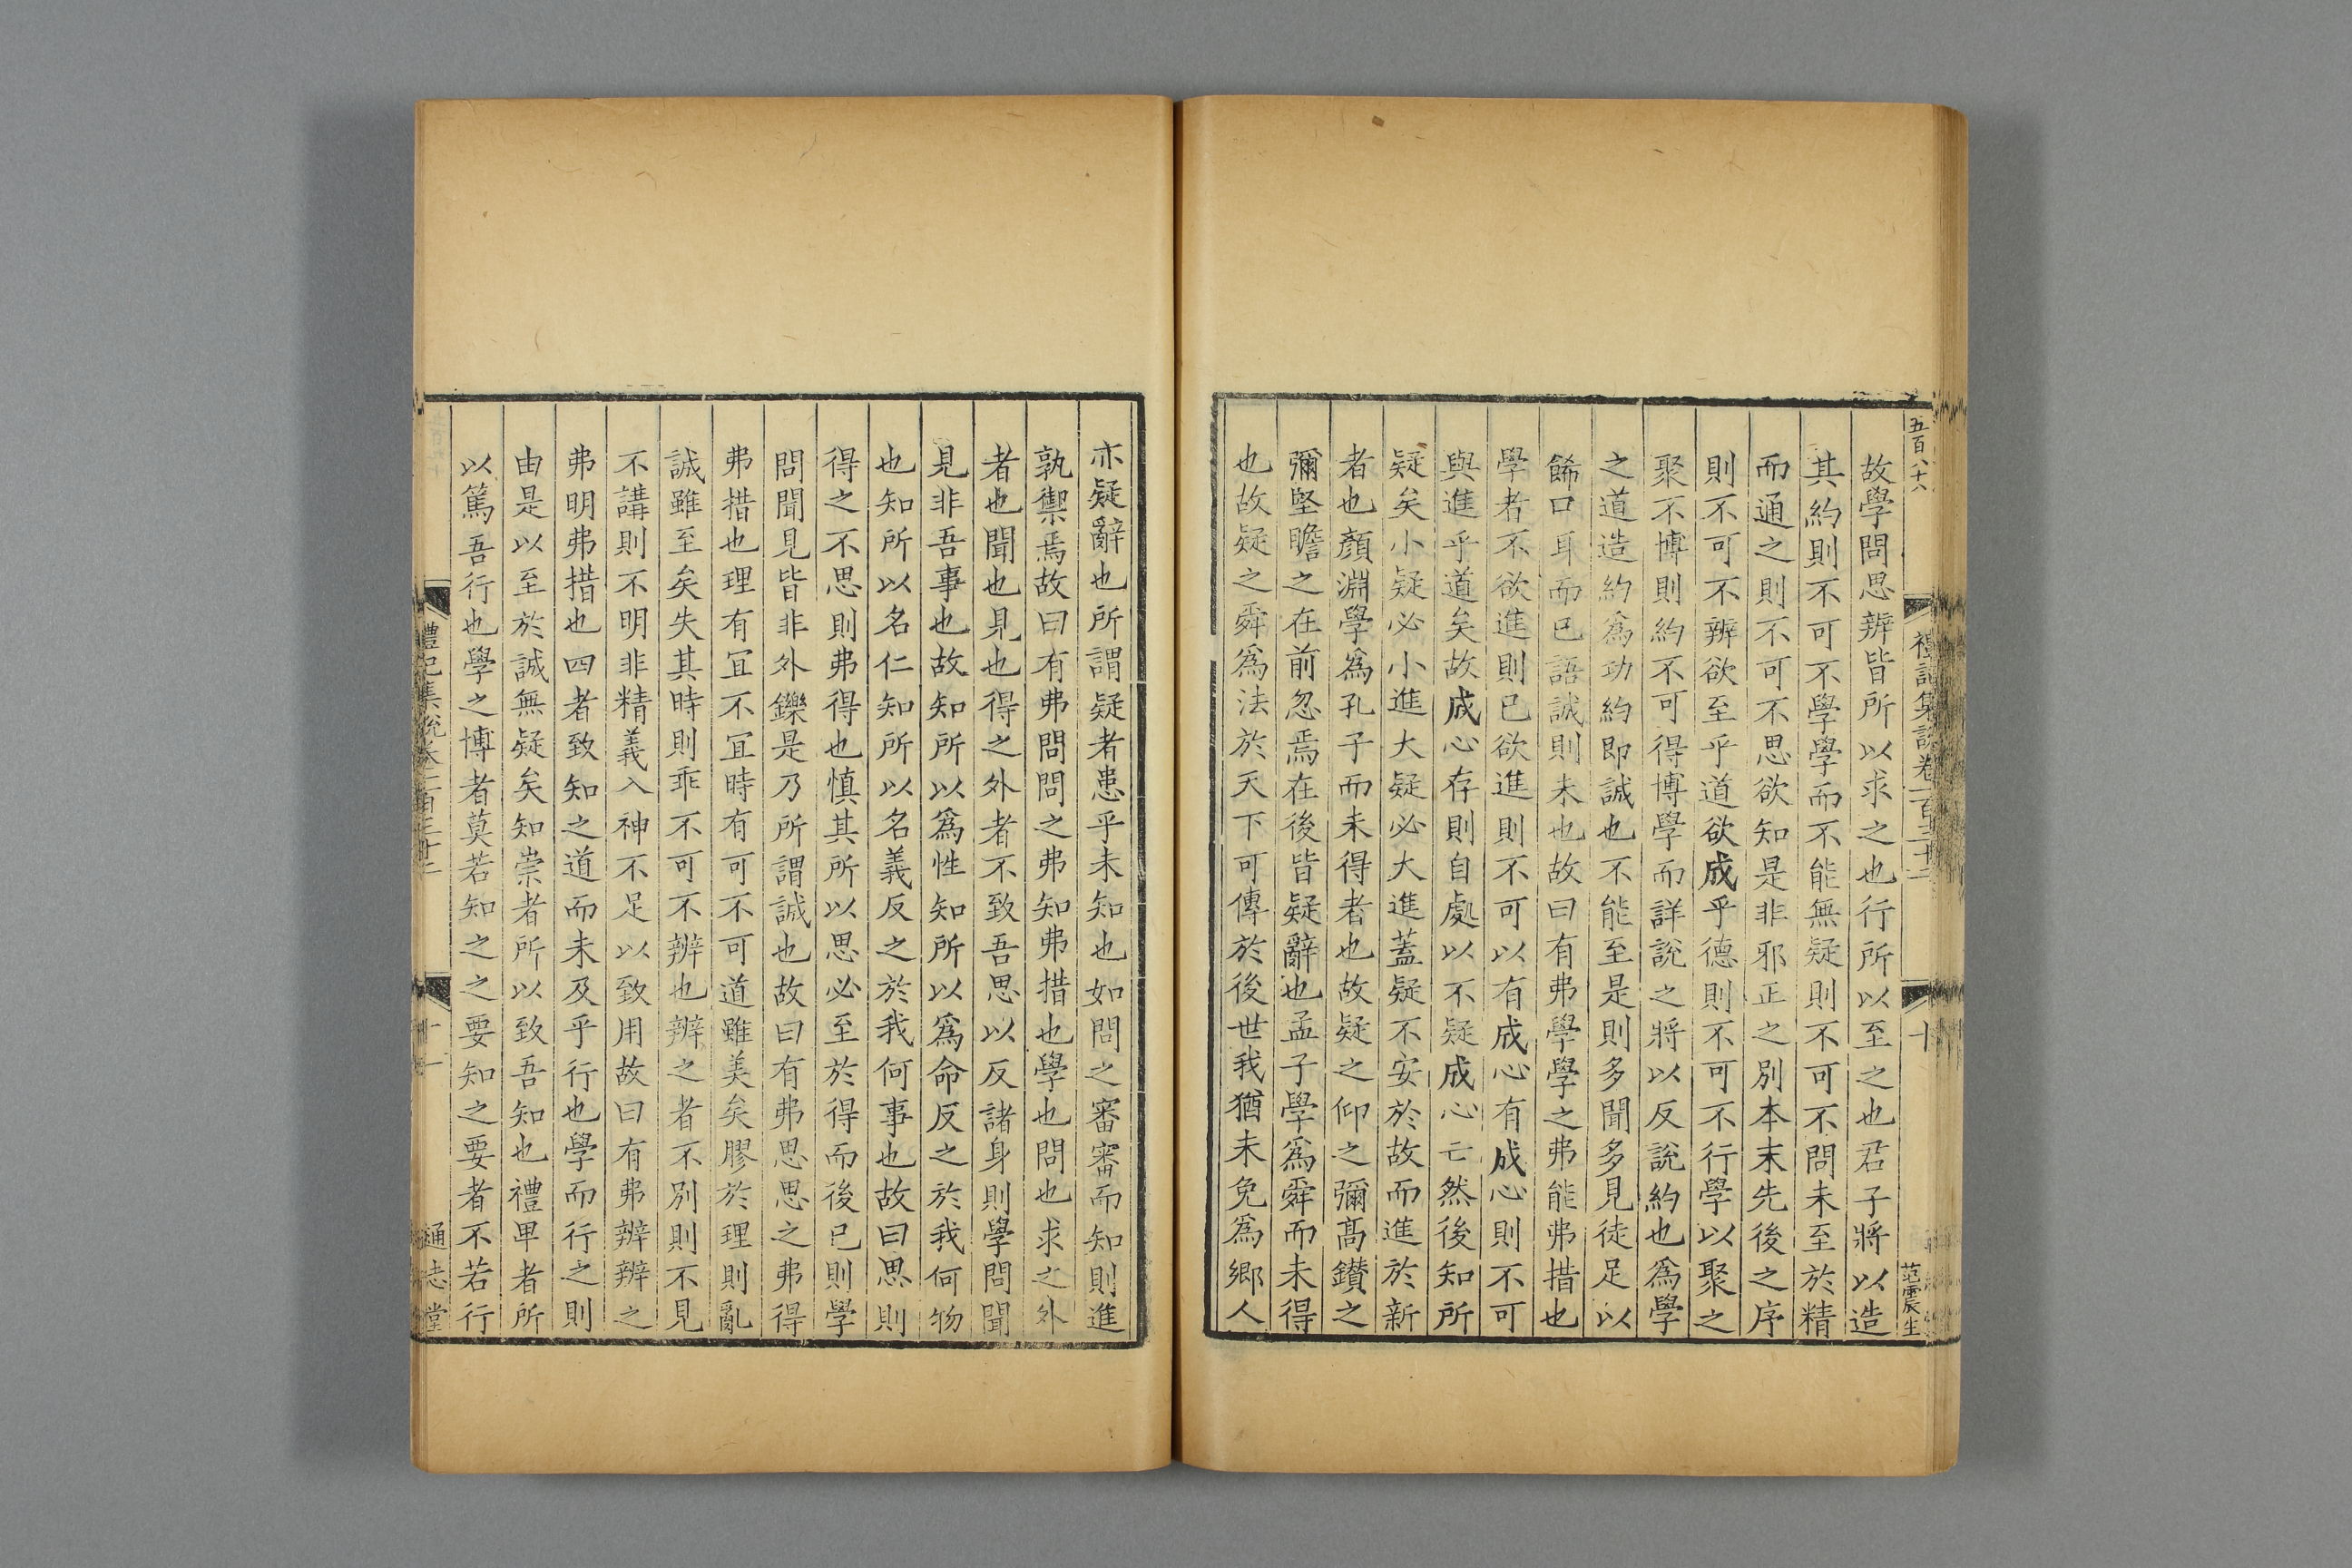 五百八十八
禮記集說卷一百三十三
十
范震生
故學問思辨皆所以求之也行所以至之也君子將以造
其約則不可不學學而不能無疑則不可不問未至於精
而通之則不可不思欲知是非邪正之別本末先後之序
則不可不辨欲至乎道欲成乎德則不可不行學以聚之
聚不博則約不可得博學而詳說之將以反說約也爲學
之道造約爲功約即誠也不能至是則多聞多見徒足以
餙口耳而已語誠則未也故曰有弗學學之弗能弗措也
學者不欲進則已欲進則不可以有成心有成心則不可
與進乎道矣故成心存則自處以不疑成心亡然後知所
疑矣小疑必小進大疑必大進蓋疑不安於故而進於新
者也顏淵學爲孔子而未得者也故疑之仰之彌髙鑚之
彌堅瞻之在前忽焉在後皆疑辭也孟子學爲舜而未得
也故疑之舜爲法於天下可傳於後世我猶未免爲鄉人
亦疑辭也所謂疑者患乎未知也如問之審審而知則進
孰禦焉故曰有弗問問之弗知弗措也學也問也求之外
者也聞也見也得之外者不致吾思以反諸身則學問聞
見非吾事也故知所以爲性知所以爲命反之於我何物
也知所以名仁知所以名義反之於我何事也故曰思則
得之不思則弗得也慎其所以思必至於得而後已則學
問聞見皆非外鑠是乃所謂誠也故曰有弗思思之弗得
弗措也理有宜不宜時有可不可道雖美矣膠於理則亂
誠雖至矣失其時則乖不可不辨也辨之者不別則不見
不講則不明非精義入神不足以致用故曰有弗辨辨之
弗明弗措也四者致知之道而未及乎行也學而行之則
由是以至於誠無疑矣知崇者所以致吾知也禮卑者所
以篤吾行也學之博者莫若知之之要知之要者不若行
禮記集說卷一百三十三
十一
通志堂